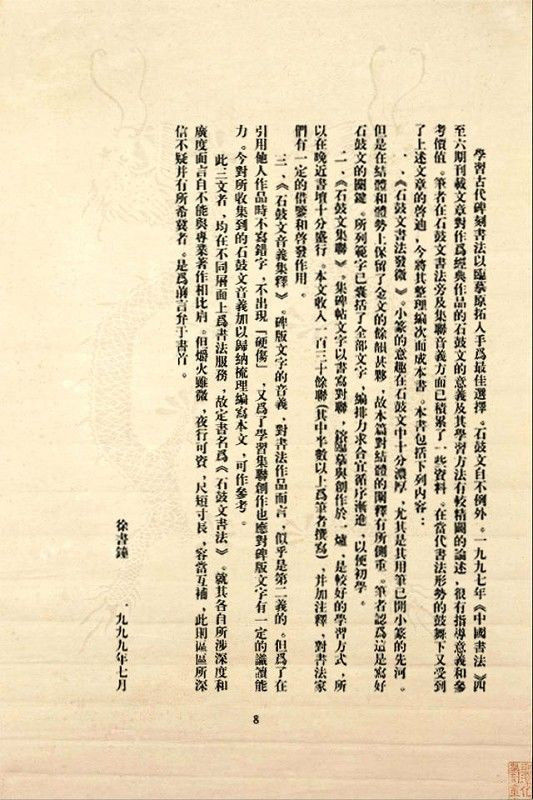 學習古代碑刻書法以臨摹原拓入手爲最佳選擇。石鼓文自不例外。一九九七年《中國書法》四
至六期刊載文章對作爲經典作品的石鼓文的意義及其學習方法有較精闢的論述，很有指導意義和參
考價值。筆者在石鼓文書法旁及集聯音義方面已積累了一些資料。在當代書法形勢的鼓舞下又受到
了上述文章的啓迪，今將其整理編次而成本書。本書包括下列內容：
一、《石鼓文書法發微》。小篆的意趣在石鼓文中十分濃厚，尤其是其用筆已開小篆的先河。
但是在結體和體勢上保留了金文的餘韻甚夥，故本篇對結體的闡釋有所側重。筆者認爲這是寫好
石鼓文的關鍵。所列範字已囊括了全部文字，編排力求合宜循序漸進，以便初學。
二、《石鼓文集聯》。集碑帖文字以書寫對聯，鎔臨摹與創作於一爐，是較好的學習方式，所
以在晚近書壇十分盛行。本文收入一百三十餘聯（其中半數以上爲筆者撰寫），并加注釋，對書法家
們有一定的借鑒和啓發作用。
三、《石鼓文音義集釋》。碑版文字的音義，對書法作品而言，似乎是第二義的。但爲了在
引用他人作品時不寫錯字，不出現「硬傷」，又爲了學習集聯創作也應對碑版文字有一定的識讀能
力。今對所收集到的石鼓文音義加以歸納梳理編寫本文，可作參考。
此三文者，均在不同層面上爲書法服務，故定書名爲《石鼓文書法》。就其各自所涉深度和
廣度而言自不能與專業著作相比肩。但爝火雖微，夜行可資，尺短寸長，容當互補，此則區區所深
信不疑并有所希冀者。是爲前言弁于書首。
徐書鐘 一九九九年七月
8